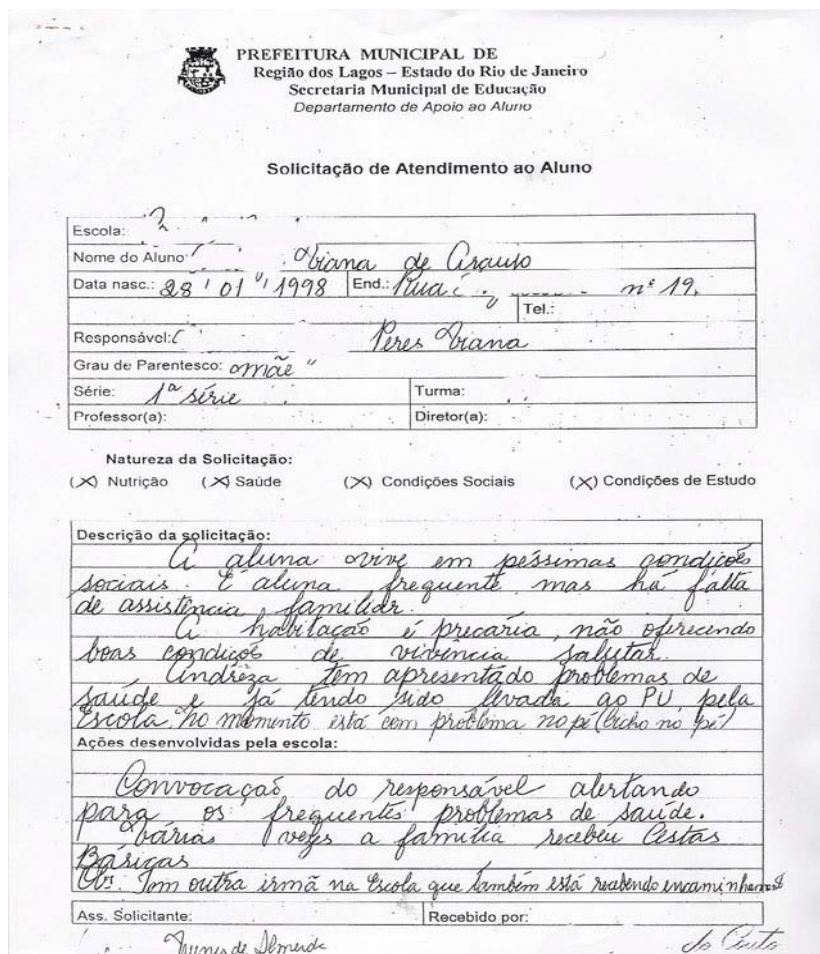 PREFEITURA MUNICIPAL DE
Região dos Lagos – Estado do Rio de Janeiro
Secretaria Municipal de Educação
Departamento de Apoio ao Aluno
Solicitação de Atendimento ao Aluno
Escola:
Nome do Aluno: Viana de Araujo
Data nasc.: 28 / 01 / 1998 End.: Rua nº 19.
Tel.:
Responsável: Peres Viana
Grau de Parentesco: mãe
Série: 1ª série Turma:
Professor(a): Diretor(a):
Natureza da Solicitação:
(X) Nutrição (X) Saúde (X) Condições Sociais (X) Condições de Estudo
Descrição da solicitação:
A aluna vive em péssimas condições
sociais. É aluna frequente mas há falta
de assistência familiar.
A habitação é precária, não oferecendo
boas condições de vivência salutar.
Andreza tem apresentado problemas de
saúde e já tendo sido levada ao PU pela
Escola. No momento está com problema no pé (bicho no pé)
Ações desenvolvidas pela escola:
Convocação do responsável alertando
para os frequentes problemas de saúde.
Várias vezes a família recebeu Cestas
Básicas
Obs: Tem outra irmã na Escola que também está recebendo encaminhament
Ass. Solicitante: Recebido por:
Nunes de Almeida do Couto